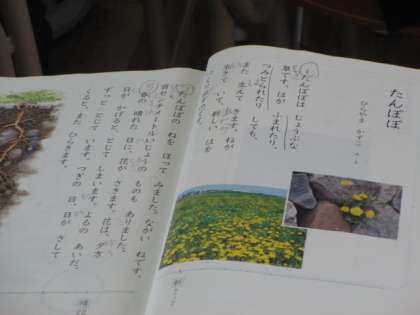 たんぽぽ
ひらやま かずこ
たんぽぽは じょうぶな
草です。はが ふまれたり、
つみとられたり しても、
また 生えて きます。ねが
生きて いて、新しい はを
たんぽぽの ねを ほって みました。ながい ねです。
百センチメートルいじょうの ものも ありました。
春の 晴れた 日に、花が さきます。花は、夕方
日が かげると、とじて しまいます。よるの あいだ、
ずっと とじて います。つぎの 日、日が さして
くると、また ひらきます。